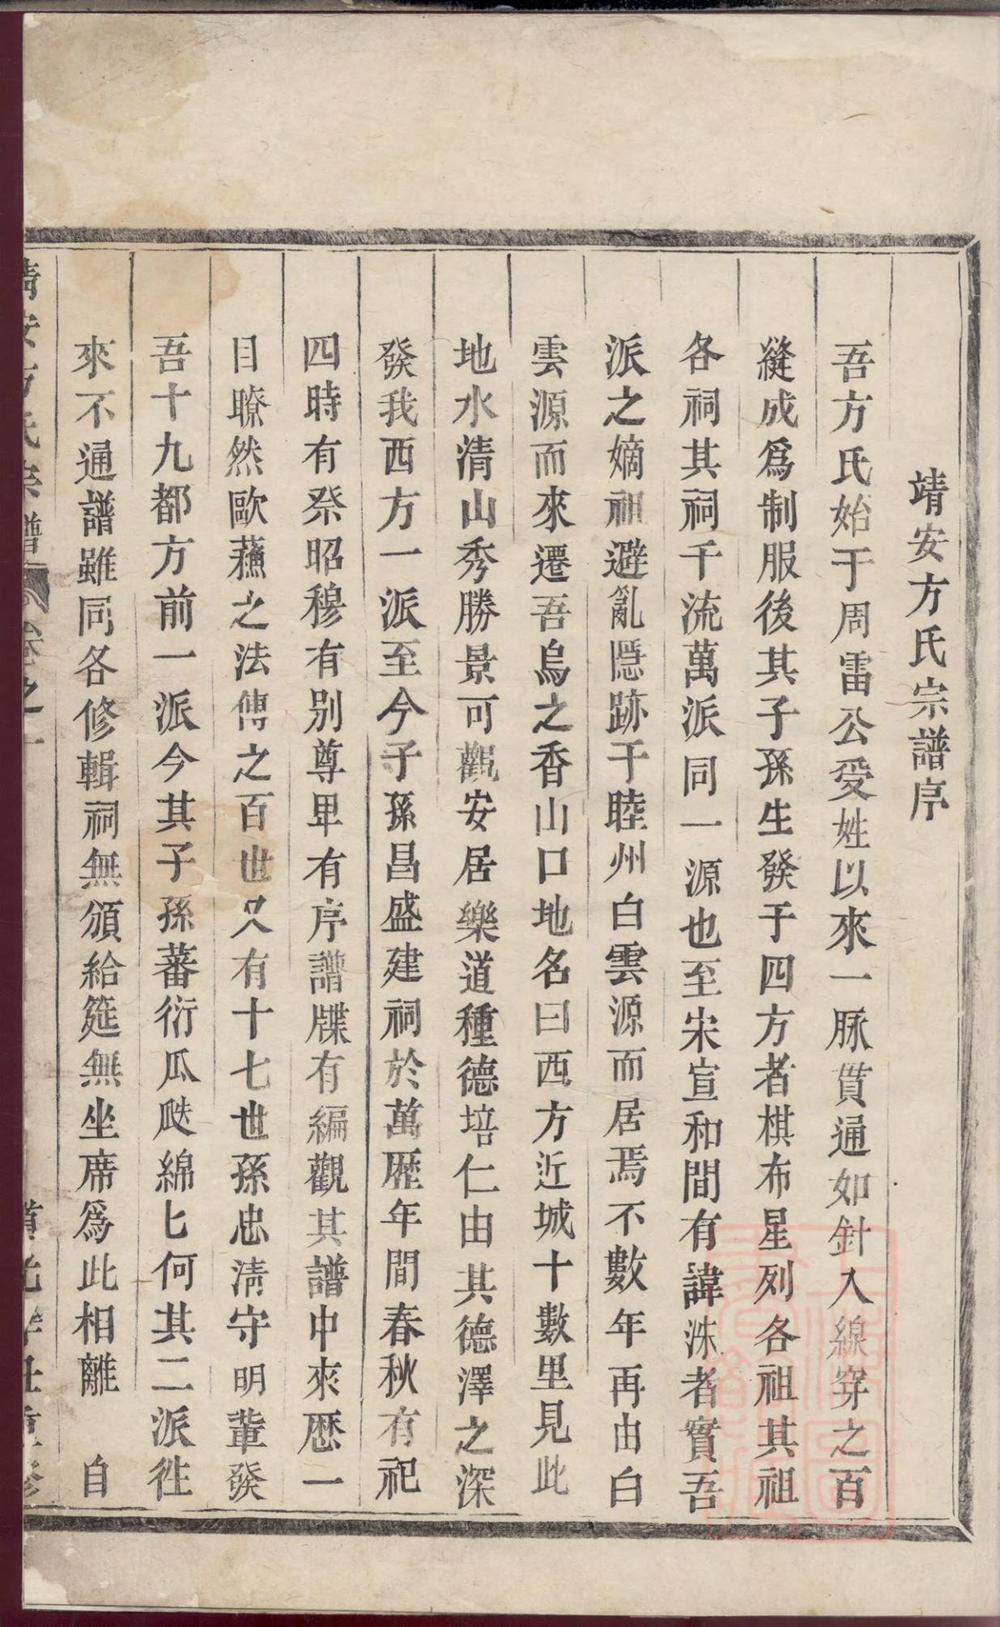 靖安方氏宗譜序
吾方氏始于周雷公受姓以來一脉貫通如針入線穿之百
縫成爲制服後其子孫生發于四方者棋布星列各祖其祖
各祠其祠千流萬派同一源也至宋宣和間有諱洙者實吾
派之嫡祖避亂隱跡于睦州白雲源而居焉不數年再由白
雲源而來遷吾烏之香山口地名曰西方近城十數里見此
地水清山秀勝景可觀安居樂道種德培仁由其德澤之深
發我西方一派至今子孫昌盛建祠於萬歷年間春秋有祀
四時有祭昭穆有別尊卑有序譜牒有編觀其譜中來歷一
目瞭然歐蘓之法傳之百世又有十七世孫忠淸守明輩發
吾十九都方前一派今其子孫蕃衍瓜瓞綿匕何其二派徃
來不通譜雖同各修輯祠無頒給筵無坐席爲此相離　自
靖安方氏宗譜 卷之一 道光辛丑重修